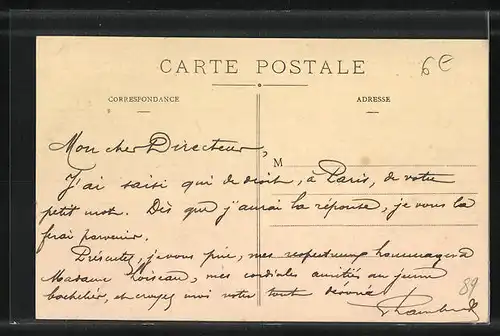 CARTE POSTALE
6€
CORRESPONDANCE
ADRESSE
Mon cher Directeur,
M
J'ai saisi qui de droit, à Paris, de votre
petit mot. Dès que j'aurai la réponse, je vous la
ferai parvenir.
Présentez, je vous prie, mes respectueux hommages à
Madame Loiseau, mes cordiales amitiés au jeune
bachelier, et croyez moi votre tout dévoué
89